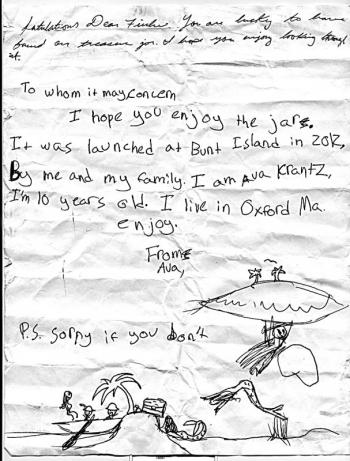 Dear Finder, You are lucky to have
found our treasure jar. I hope you enjoy looking through
it.
To whom it may concern
I hope you enjoy the jars.
It was launched at Bunt Island in 2012,
By me and my family. I am Ava Krantz,
I'm 10 years old. I live in Oxford Ma.
enjoy.
From
Ava,
P.S. sorry if you don't